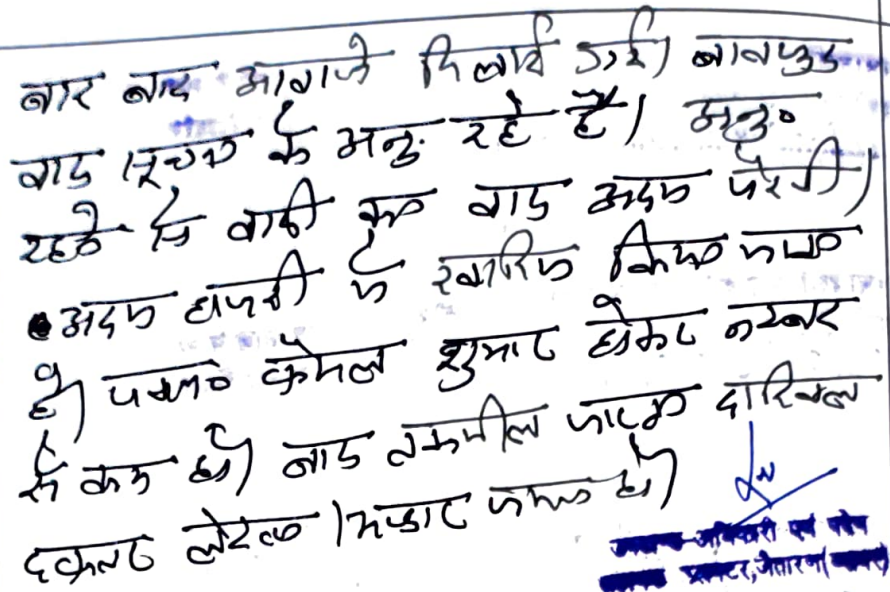 बार बार आवाजे दिलाई गई। बावजूद
बाद सूचना के अनु. रहे है। अनु०
रहने से वादी का वाद अदम पैरवी।
अदम हाजरी में खारिज किया जाता
है। पत्रा० फैसल शुमार होकर नम्बर
से कम हो। बाद तकमील पत्रा० दाखिल
दफ्तर लेख भण्डार जमा हो।
अधिकारी एवं पदेन
कलक्टर, जैतारण